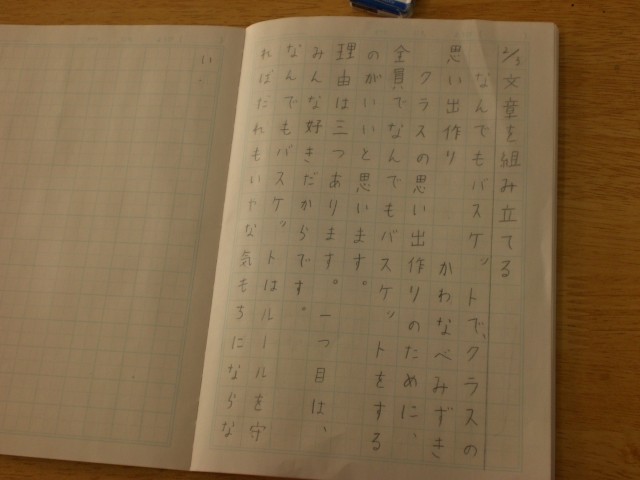 2/3文章を組み立てる
なんでもバスケットで、クラスの
思い出作り
かわなべみずき
クラスの思い出作りのために、
全員でなんでもバスケットをする
のがいいと思います。
理由は三つあります。一つ目は、
みんな好きだからです。
なんでもバスケットはルールを守
ればだれもいやな気もちにならな
い